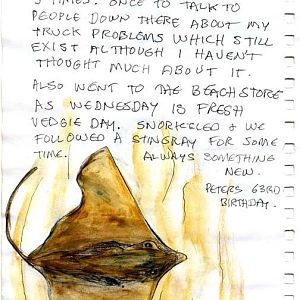 3 TIMES. ONCE TO TALK TO
PEOPLE DOWN THERE ABOUT MY
TRUCK PROBLEMS WHICH STILL
EXIST ALTHOUGH I HAVEN'T
THOUGHT MUCH ABOUT IT.
ALSO WENT TO THE BEACH STORE
AS WEDNESDAY IS FRESH
VEDGIE DAY. SNORKELED & WE
FOLLOWED A STINGRAY FOR SOME
TIME. ALWAYS SOMETHING
NEW.
PETERS 63RD
BIRTHDAY.